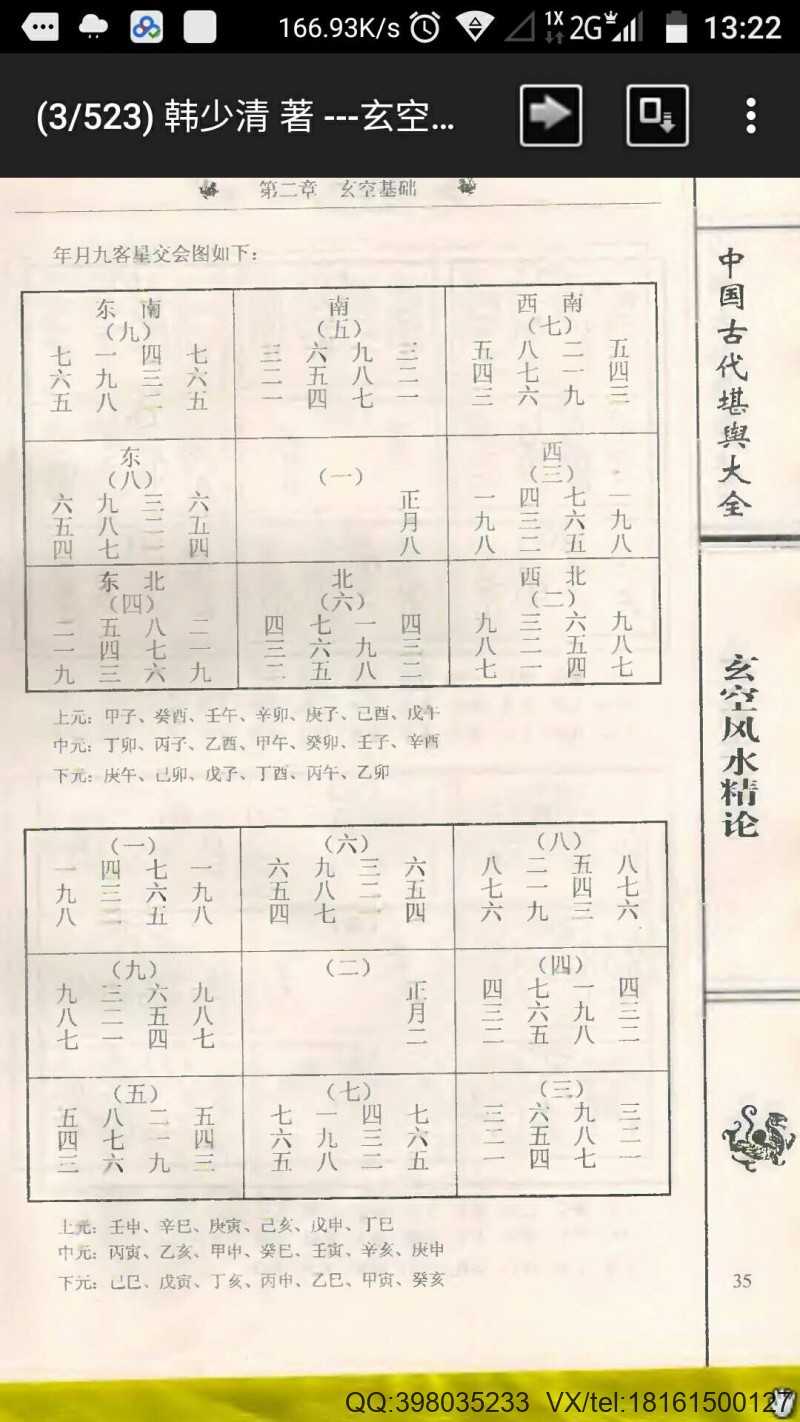 166.93K/s 1X 2G 13:22
(3/523) 韩少清 著 ---玄空...
第二章 玄空基础
年月九客星交会图如下:
东 南 南 西 南
(九) (五) (七)
七 一 四 七 三 六 九 三 五 八 二 五
六 九 三 六 二 五 八 二 四 七 一 四
五 八 二 五 一 四 七 一 三 六 九 三
东 西
(八) (一) (三)
六 九 三 六 正 一 四 七 一
五 八 二 五 月 九 三 六 九
四 七 一 四 八 八 二 五 八
东 北 北 西 北
(四) (六) (二)
二 五 八 二 四 七 一 四 九 三 六 九
一 四 七 一 三 六 九 三 八 二 五 八
九 三 六 九 二 五 八 二 七 一 四 七
上元: 甲子、癸酉、壬午、辛卯、庚子、己酉、戊午
中元: 丁卯、丙子、乙酉、甲午、癸卯、壬子、辛酉
下元: 庚午、己卯、戊子、丁酉、丙午、乙卯
(一) (六) (八)
一 四 七 一 六 九 三 六 八 二 五 八
九 三 六 九 五 八 二 五 七 一 四 七
八 二 五 八 四 七 一 四 六 九 三 六
(九) (二) (四)
九 三 六 九 正 四 七 一 四
八 二 五 八 月 三 六 九 三
七 一 四 七 二 二 五 八 二
(五) (七) (三)
五 八 二 五 七 一 四 七 三 六 九 三
四 七 一 四 六 九 三 六 二 五 八 二
三 六 九 三 五 八 二 五 一 四 七 一
上元: 壬申、辛巳、庚寅、己亥、戊申、丁巳
中元: 丙寅、乙亥、甲申、癸巳、壬寅、辛亥、庚申
下元: 己巳、戊寅、丁亥、丙申、乙巳、甲寅、癸亥
中国古代堪舆大全
玄空风水精论
35
QQ:398035233 VX/tel:18161500127